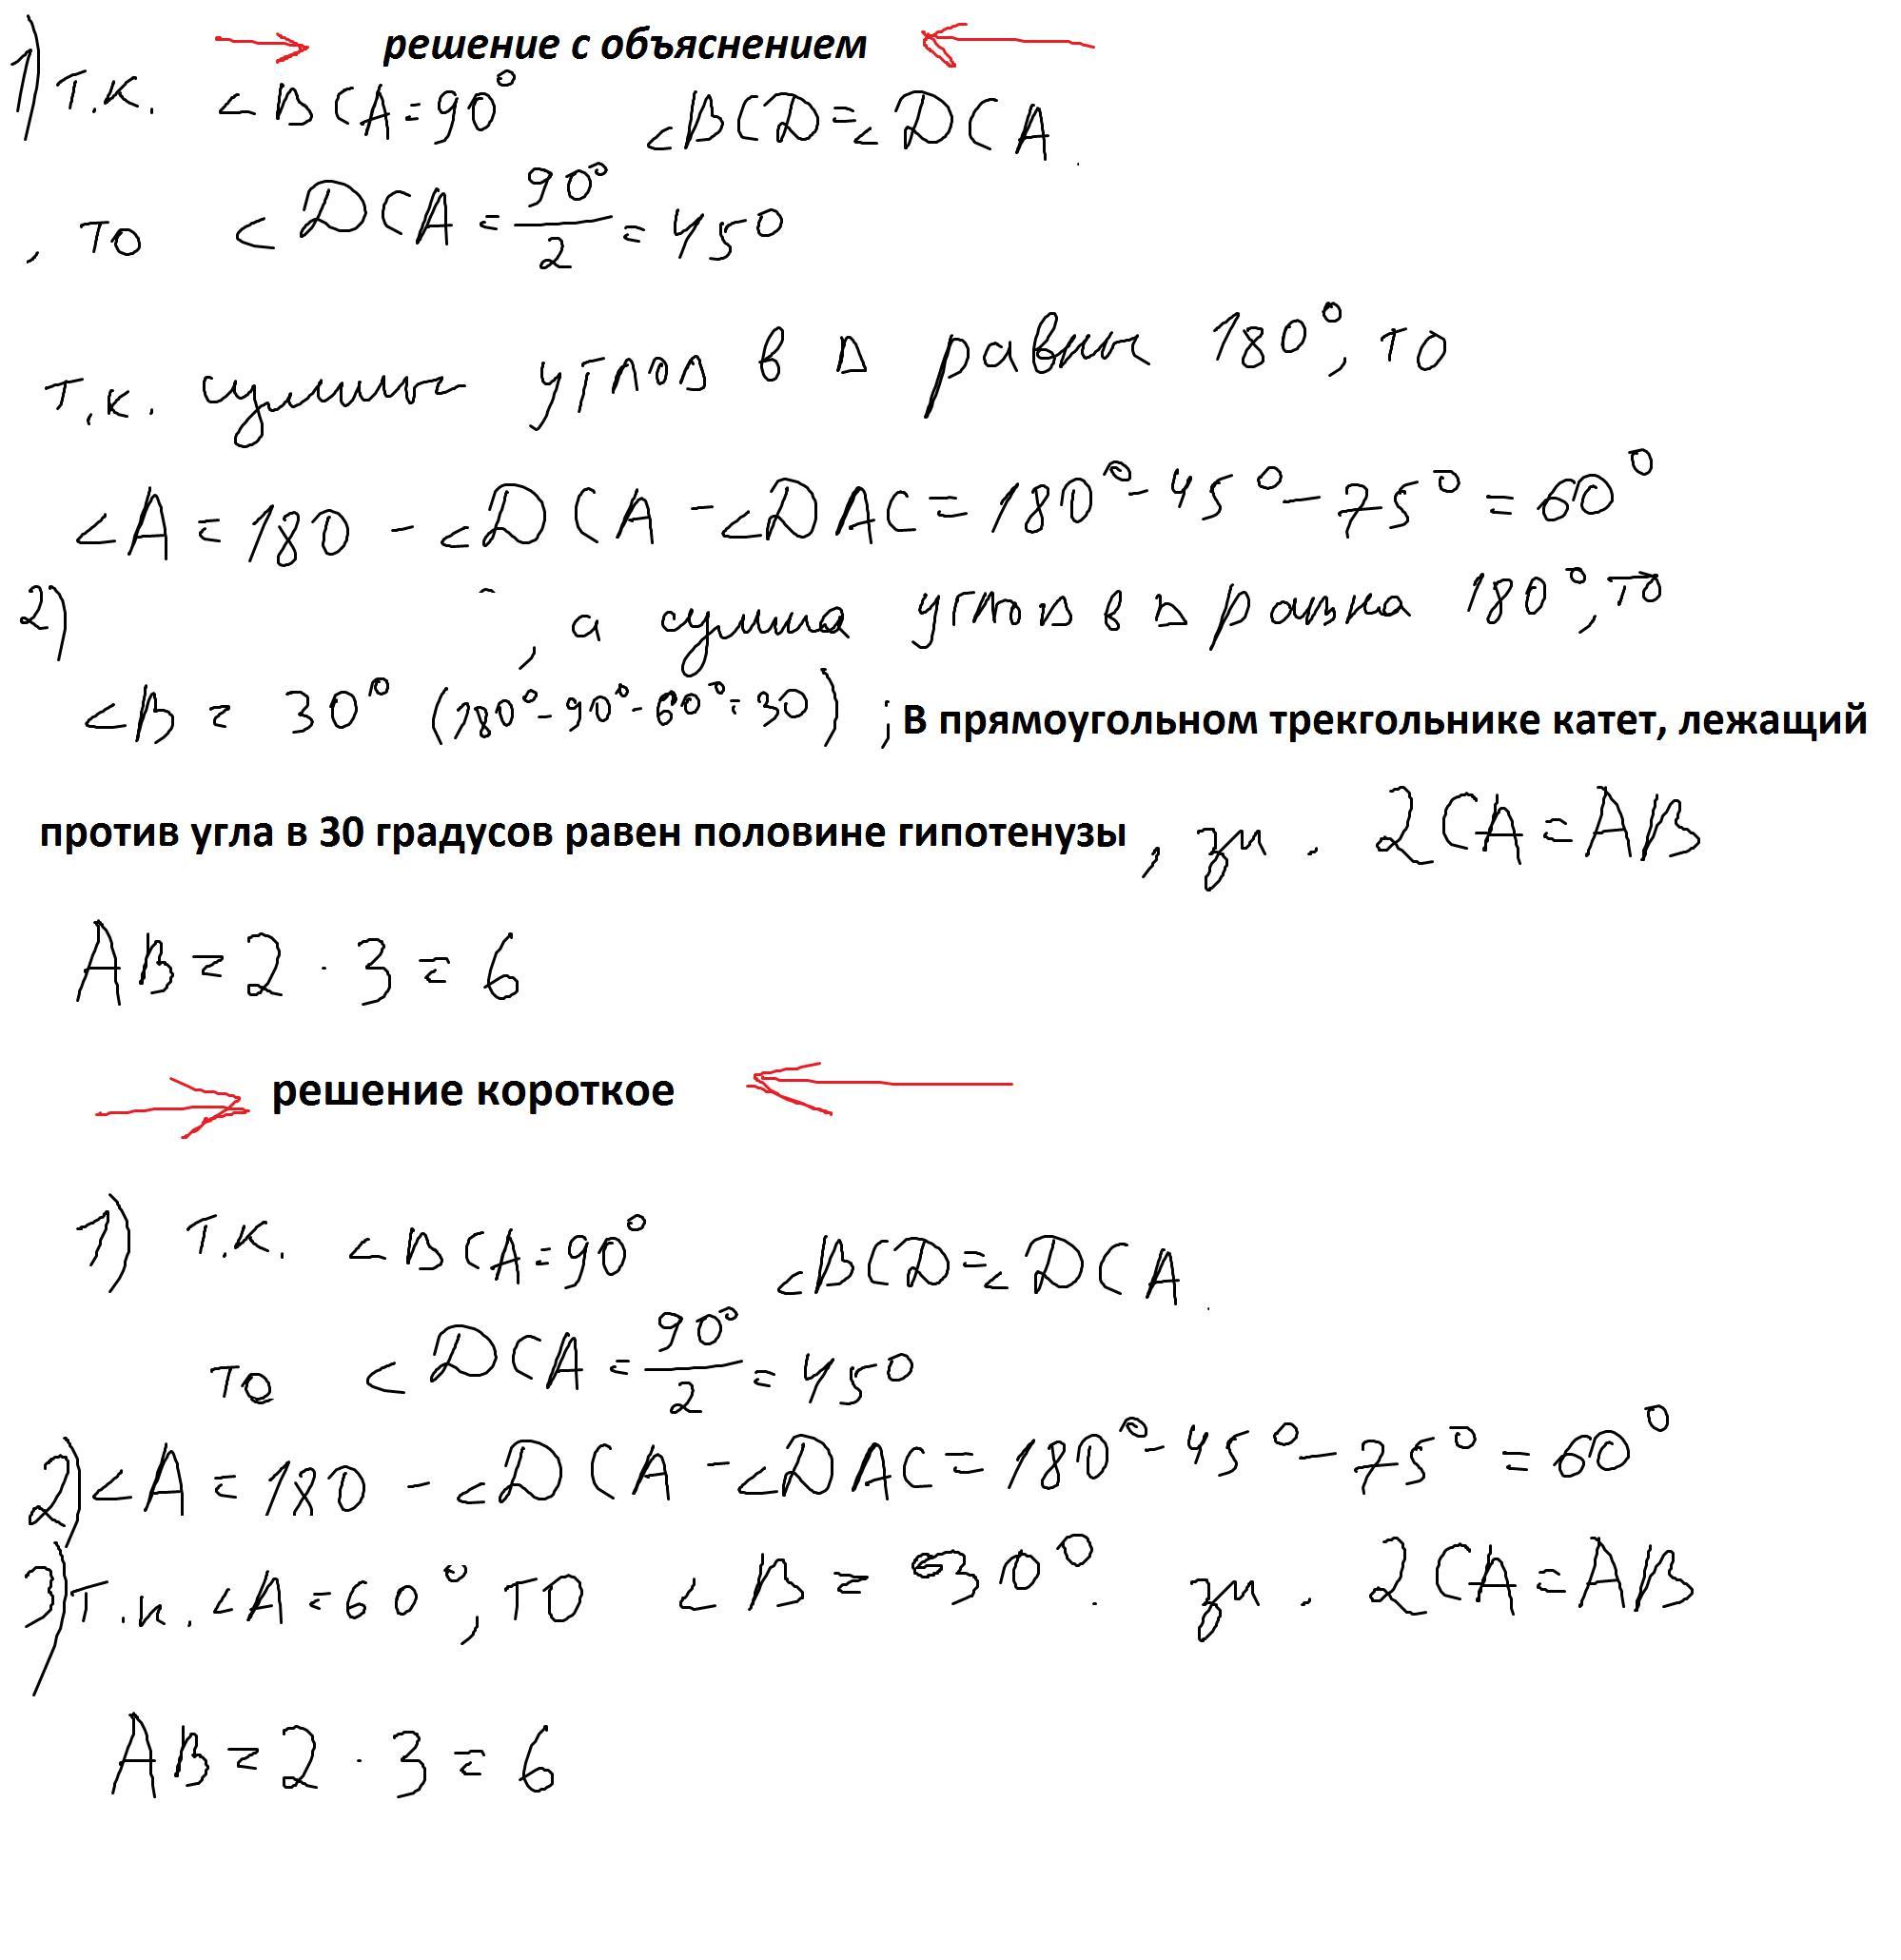 решение с объяснением
1) т.к. <BCA=90° <BCD=<DCA.
, то <DCA=90°/2=45°
т.к. сумма углов в Δ равны 180°, то
<A=180-<DCA-<DAC=180°-45°-75°=60°
2) , а сумма углов в Δ равна 180°, то
<B=30° (180°-90°-60°=30) ; В прямоугольном трекгольнике катет, лежащий
против угла в 30 градусов равен половине гипотенузы , зн. 2CA=AB
AB=2·3=6
решение короткое
1) т.к. <BCA=90° <BCD=<DCA.
то <DCA=90°/2=45°
2) <A=180-<DCA-<DAC=180°-45°-75°=60°
3) т.к. <A=60°, то <B=30°. зн. 2CA=AB
AB=2·3=6